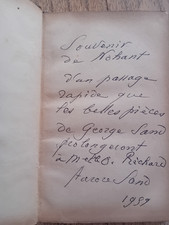 Souvenir
de Nohant
d'un passage
rapide que
les belles pièces
de George Sand
prolongeront
à Richard
Aurore Sand